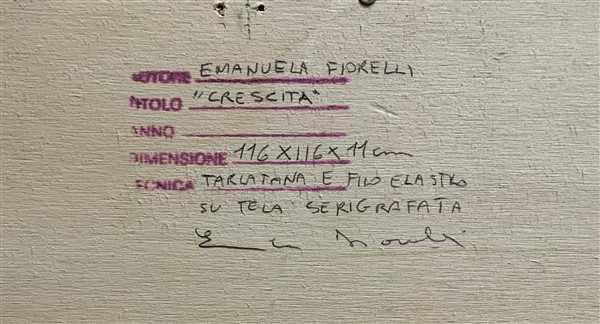 AUTORE EMANUELA FIORELLI
TITOLO "CRESCITA"
ANNO
DIMENSIONE 116X116X11cm
TECNICA TARLATANA E FILO ELASTICO
SU TELA SERIGRAFATA